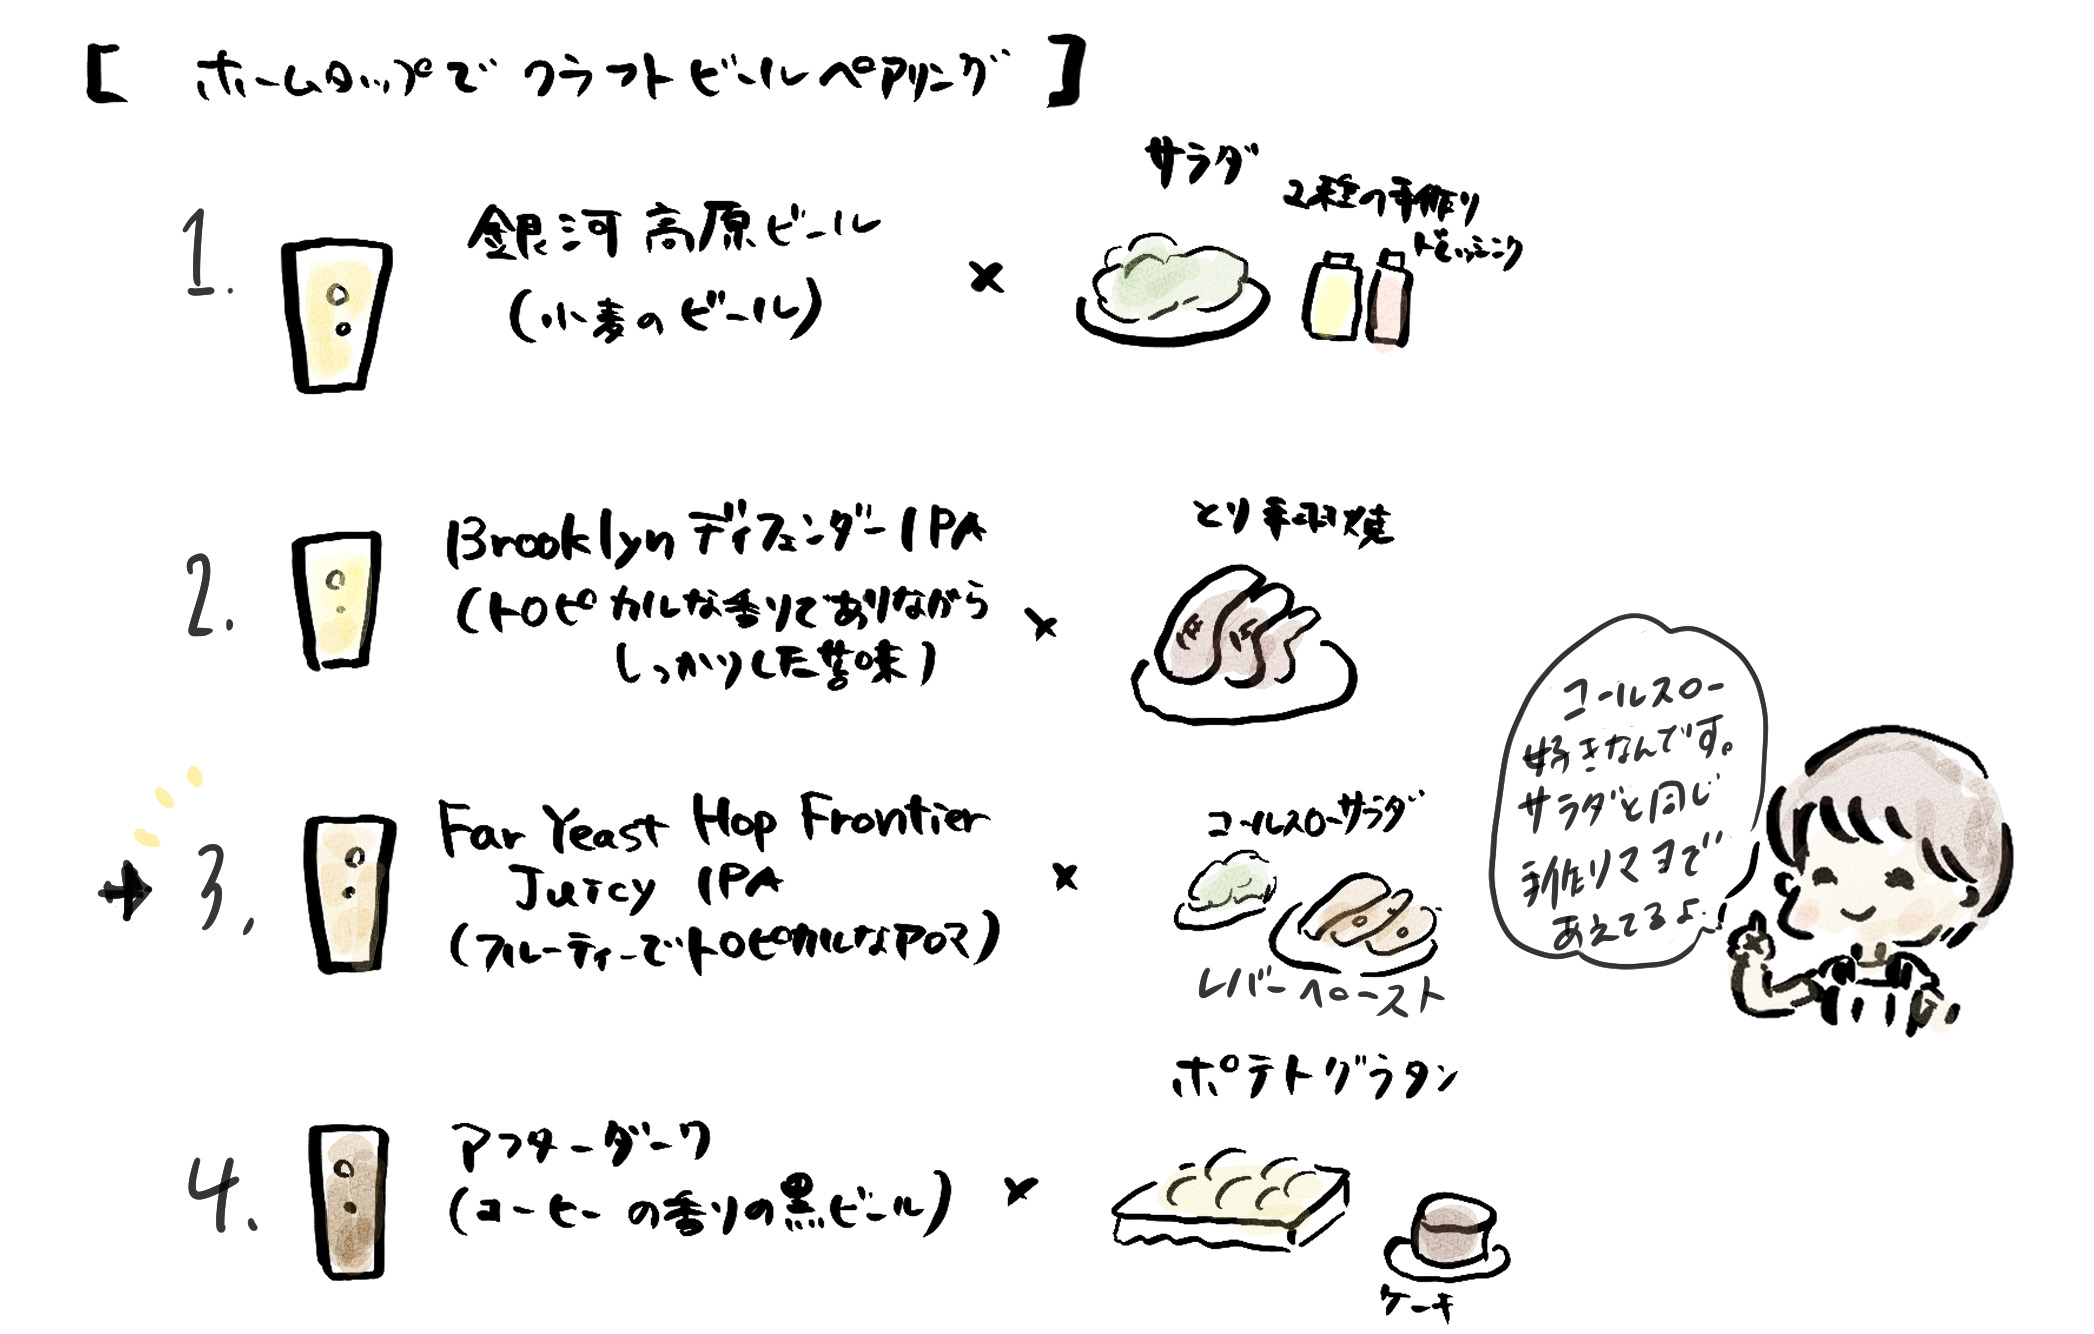 [ ホームタップで クラフトビールペアリング ]
1.
銀河高原ビール
(小麦のビール)
×
サラダ
2種の手作り
ドレッシング
2.
Brooklyn ディフェンダーIPA
(トロピカルな香りでありながら
しっかりした苦味)
×
とり手羽焼
→ 3.
Far Yeast Hop Frontier
Juicy IPA
(フルーティーでトロピカルなアロマ)
×
コールスローサラダ
レバーペースト
コールスロー
好きなんです。
サラダと同じ
手作りマヨで
あえてるよ!
4.
アフターダーク
(コーヒーの香りの黒ビール)
×
ポテトグラタン
ケーキ